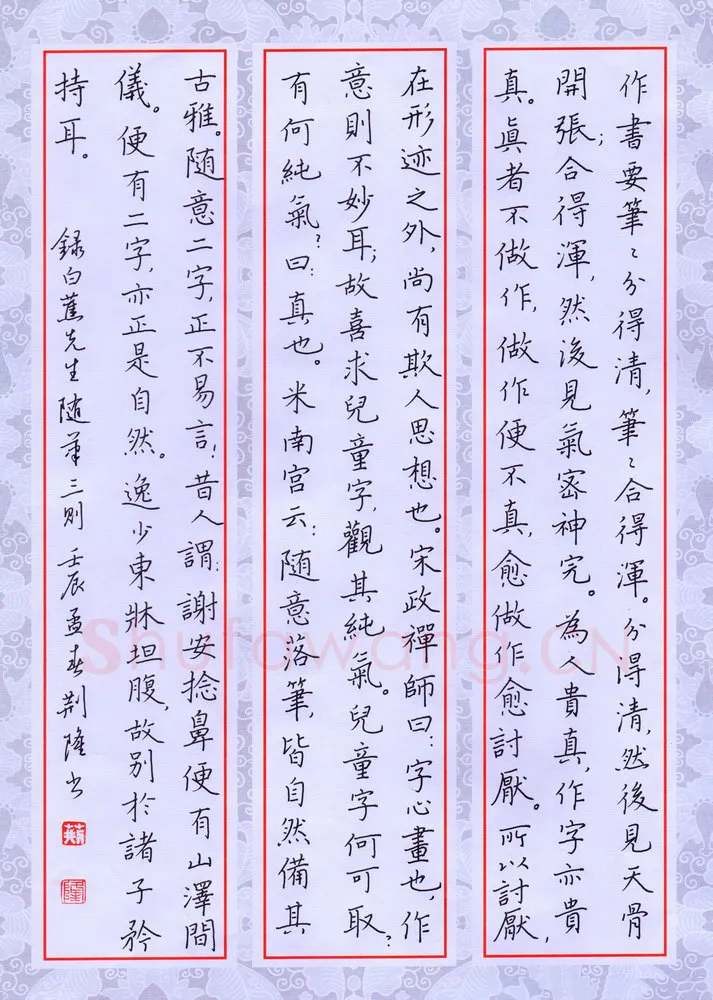 作書要筆〻分得清，筆〻合得渾。分得清，然後見天骨
開張；合得渾，然後見氣密神完。為人貴真，作字亦貴
真。眞者不做作，做作便不真，愈做作愈討厭。所以討厭，
在形迹之外，尚有欺人思想也。宋政禪師曰：字心畫也，作
意則不妙耳；故喜求兒童字，觀其純氣。兒童字何可取？
有何純氣？曰：真也。米南宮云：随意落筆，皆自然備其
古雅。随意二字，正不易言！昔人謂：謝安捻鼻便有山澤間
儀。便有二字，亦正是自然。逸少東牀坦腹，故別於諸子矜
持耳。
録白蕉先生随筆三則 壬辰孟春荆隆书
Shufawang.CN